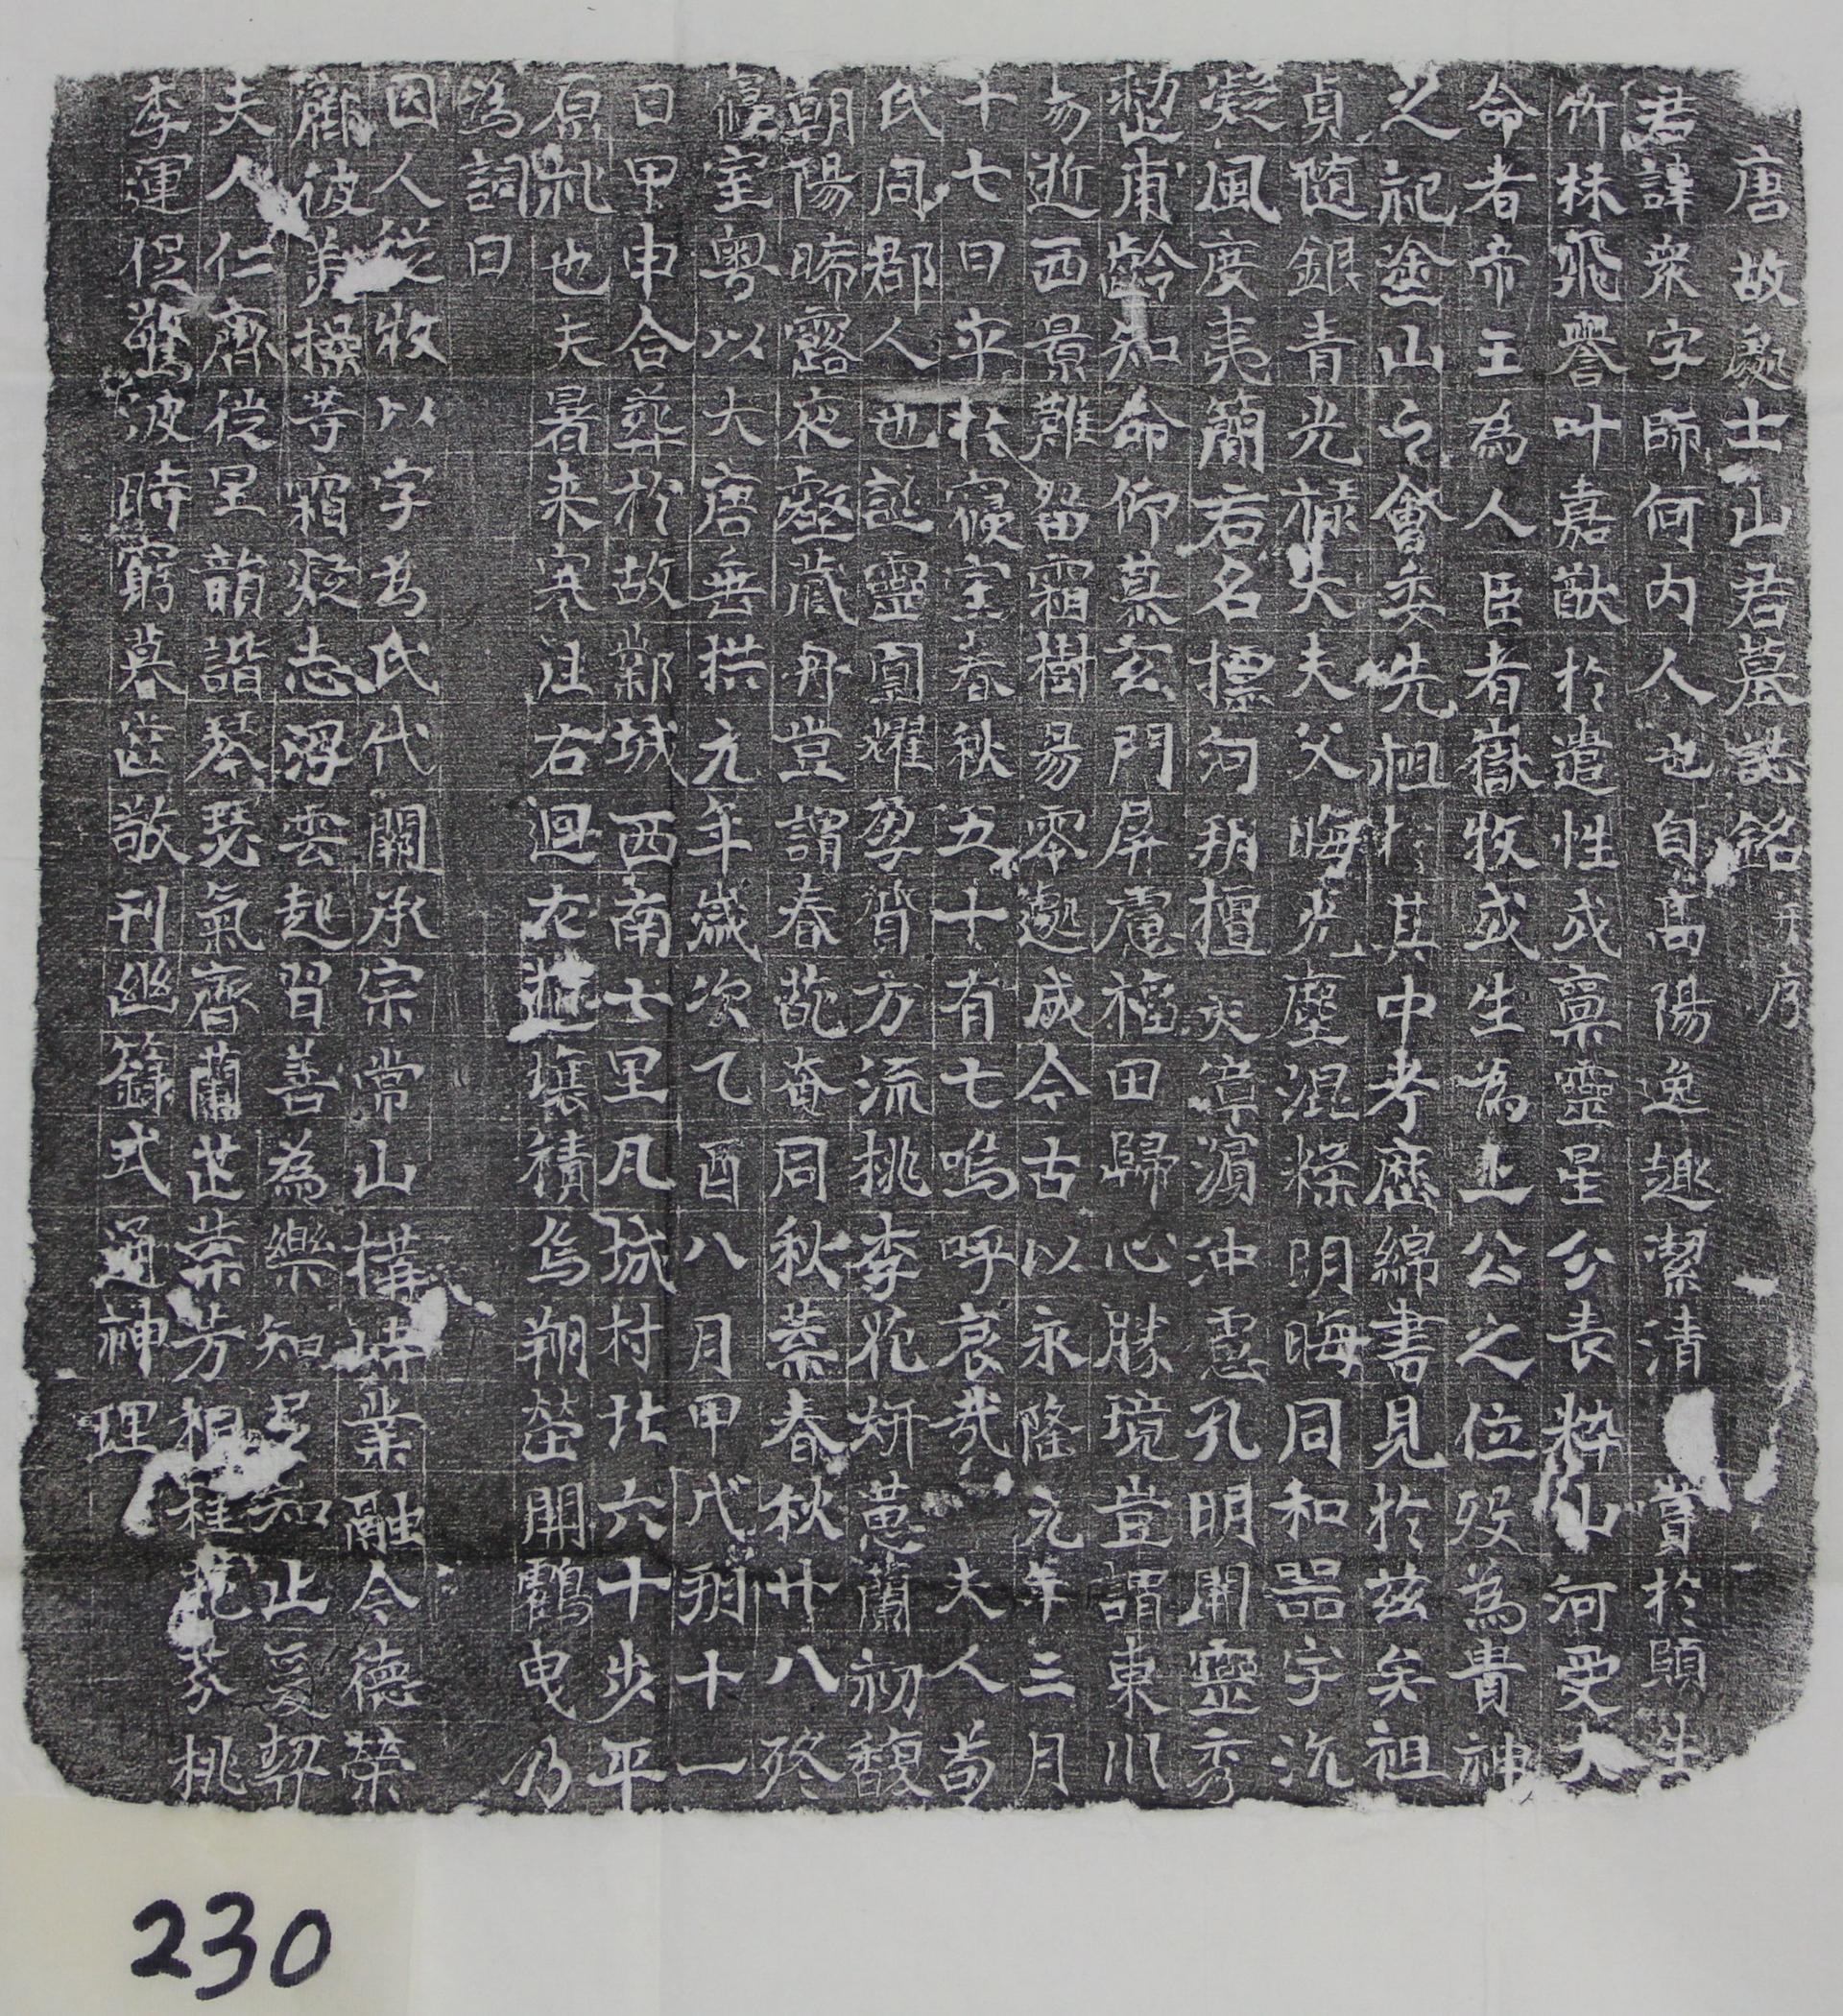 唐故處士山君墓誌銘 并序
君諱衆字師何內人也自高陽逸趣潔清 賞於頤生
竹林飛譽叶嘉猷於遣性或稟靈星分表粹山河受大
命者帝王為人臣者嶽牧或生為上公之位歿為貴神
之祀塗山之會委先祖於其中考歷綿書見於茲矣祖
貞隨銀青光祿大夫父晦光塵混糅明晦同和器宇沉
凝風度夷簡君名摽衬朔檀天章濱沖憲孔明開靈秀
挺甫齡知命仰慕玄門屏慮福田歸心勝境豈謂東川
易逝西景難留霜樹易零遽成今古以永隆元年三月
十七日卒於寢室春秋五十有七嗚呼哀哉夫人苟
氏同郡人也誕靈圓耀孕質方流桃李花妍蕙蘭初馥
朝陽晞露夜壑藏舟豈謂春蘤奄同秋蘂春秋廿八終
寢室粵以大唐垂拱元年歲次乙酉八月甲戌朔十一
日甲申合葬於故鄴城西南七里凡城村北六十步平
原礼也夫暑来寒往右迴左遊壤積烏翔塋開鶴曳乃
為詞曰
因人從牧以字為氏代闢承宗常山構峙業融令德榮
齊彼美操等霜凝志浮雲起習善為樂知足知止爰契
夫人仁齊從里韻諧琴瑟氣齊蘭芷葉芳相種花芬桃
李運促驚波時窮暮晷敬刊幽籙式通神理
230